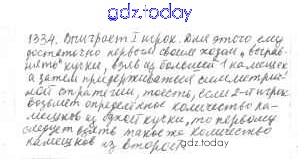 gdz.today
1334. Выиграет I игрок. Для этого ему
достаточно первым своим ходом "вырав-
нять" кучки, взяв из большей 1 камешек
а затем придерживаться симметрич-
ной стратегии, тоесть, если 2-й игрок
возьмет определенное количество ка-
мешков из одной кучки, то первому
следует взять такое же количество
камешков из второй.
gdz.today